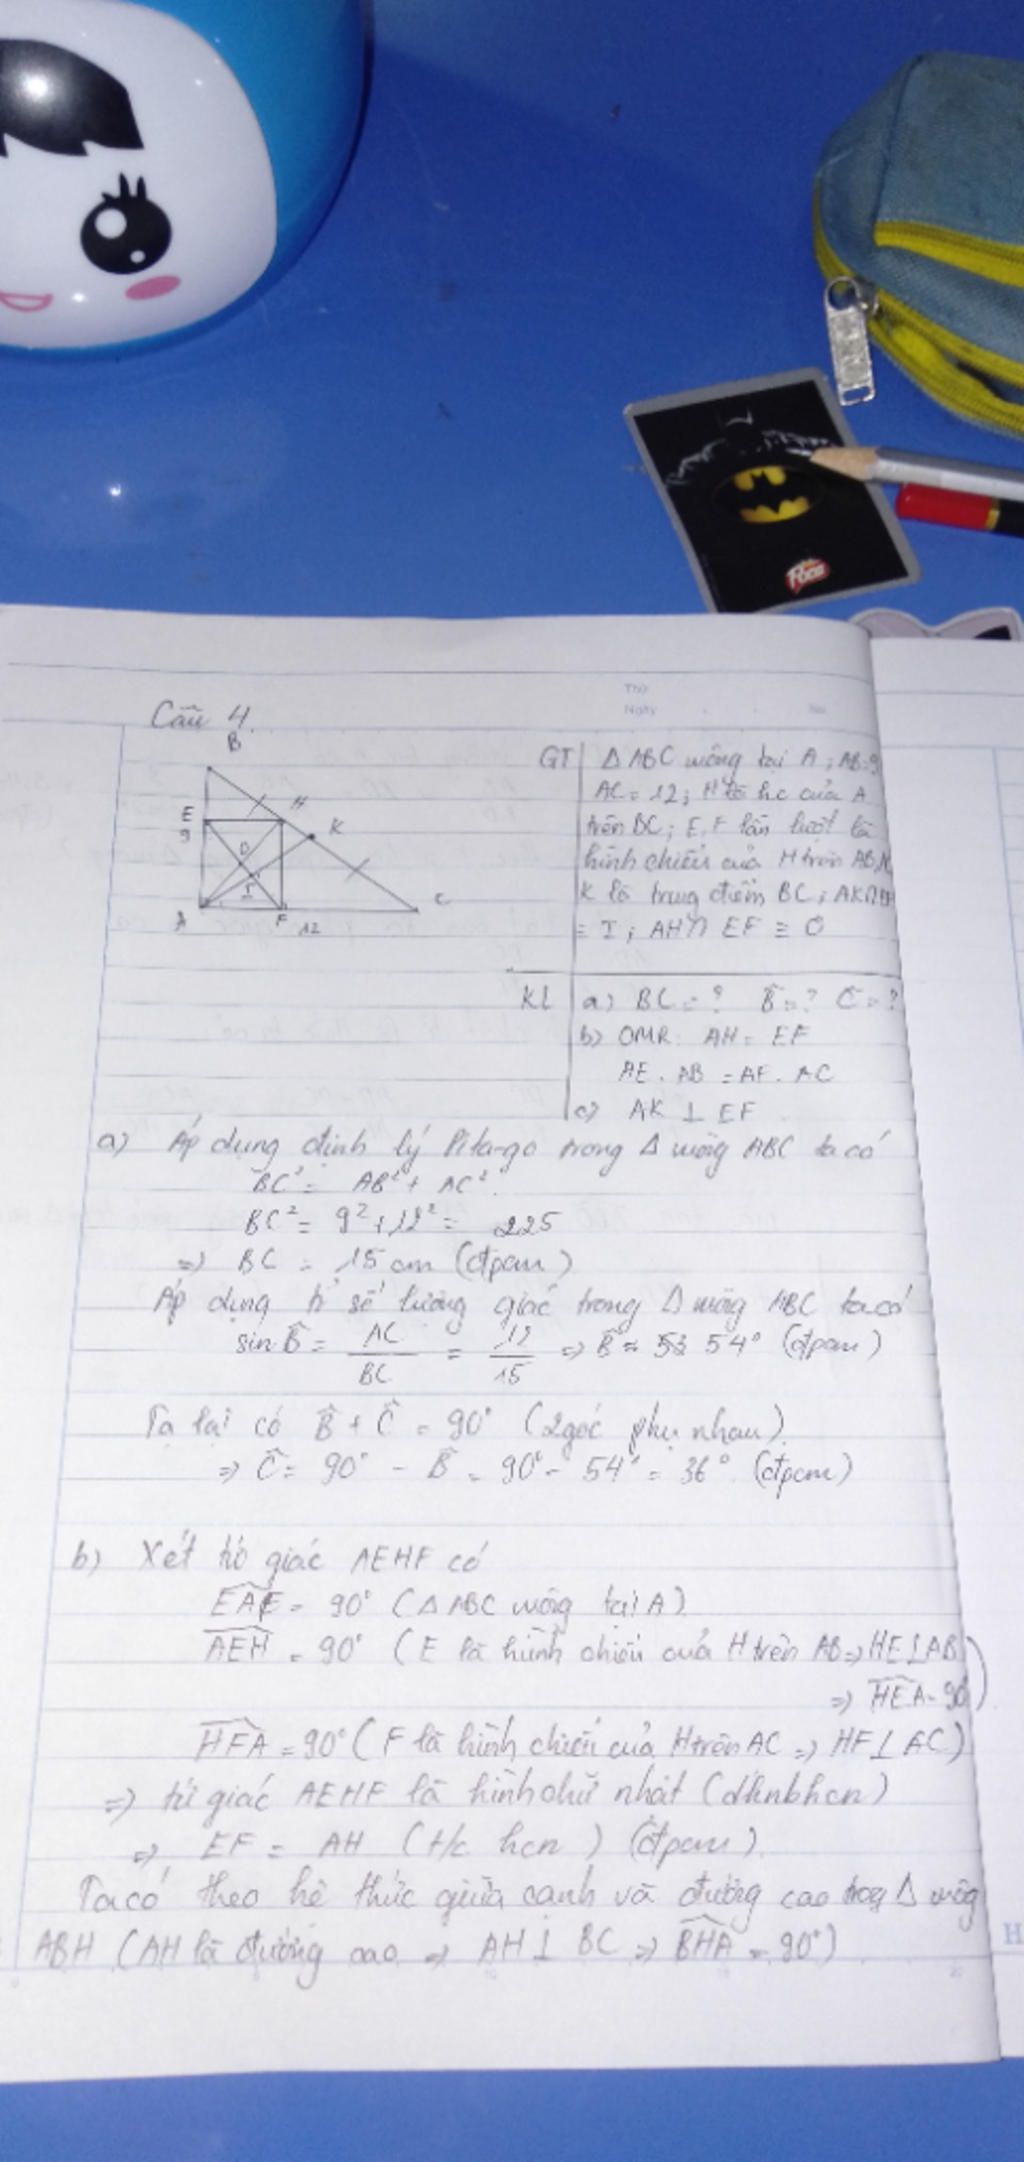 Thứ
Ngày
Câu 4.
B
E
H
9
K
O
I
A
F
12
C
GT ΔABC vuông tại A; AB=9
AC = 12; H là hc của A
trên BC; E, F lần lượt là
hình chiếu của H trên AB,
K là trung điểm BC; AK∩
≡ I; AH∩ EF ≡ O
KL a) BC = ? B̂ = ? Ĉ = ?
b) CMR: AH = EF
AE . AB = AF . AC
c) AK ⊥ EF
a) Áp dụng định lý Pita-go trong Δ vuông ABC ta có
BC² = AB² + AC²
BC² = 9² + 12² = 225
=> BC = 15 cm (đpcm)
Áp dụng tỉ số lượng giác trong Δ vuông ABC ta có
sin B̂ = AC/BC = 12/15 => B̂ ≈ 54° (đpcm)
Ta lại có B̂ + Ĉ = 90° (2 góc phụ nhau)
=> Ĉ = 90° - B̂ = 90° - 54° = 36° (đpcm)
b) Xét tứ giác AEHF có
EAF = 90° (ΔABC vuông tại A)
AEH = 90° (E là hình chiếu của H trên AB => HE⊥AB
=> HEA = 90°)
HFA = 90° (F là hình chiếu của H trên AC => HF⊥AC)
=> tứ giác AEHF là hình chữ nhật (dhnbhcn)
=> EF = AH (t/c hcn) (đpcm)
Ta có theo hệ thức giữa cạnh và đường cao trog Δ vuông
ABH (AH là đường cao => AH⊥BC => BHA = 90°)
Poca
H